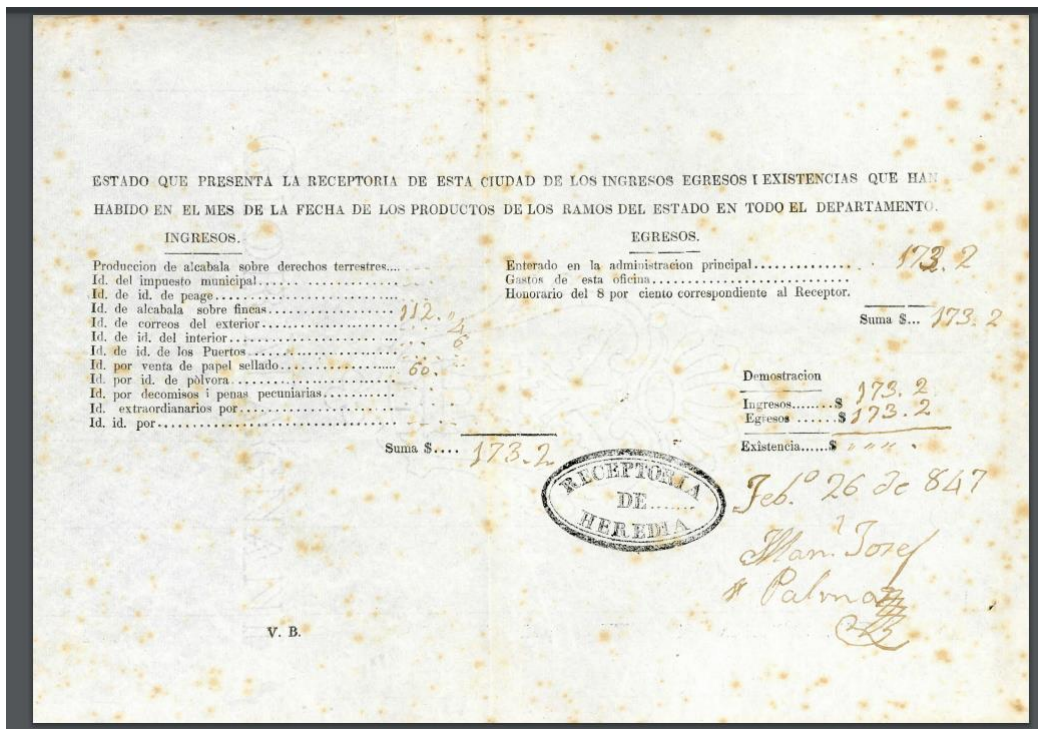 ESTADO QUE PRESENTA LA RECEPTORIA DE ESTA CIUDAD DE LOS INGRESOS EGRESOS I EXISTENCIAS QUE HAN
HABIDO EN EL MES DE LA FECHA DE LOS PRODUCTOS DE LOS RAMOS DEL ESTADO EN TODO EL DEPARTAMENTO.
INGRESOS.
Produccion de alcabala sobre derechos terrestres....
Id. del impuesto municipal
Id. de id. de peage
Id. de alcabala sobre fincas 112.
Id. de correos del exterior
Id. de id. del interior
Id. de id. de los Puertos
Id. por venta de papel sellado 60.
Id. por id. de pòlvora
Id. por decomisos i penas pecuniarias
Id. extraordianarios por
Id. id. por
Suma $.... 173.2
EGRESOS.
Enterado en la administracion principal 173.2
Gastos de esta oficina
Honorario del 8 por ciento correspondiente al Receptor.
Suma $... 173.2
Demostracion
Ingresos.......$ 173.2
Egresos ......$ 173.2
Existencia......$
RECEPTORIA
DE.......
HEREDIA
Feb.º 26 de 847
Man.l Josef
Palma
V. B.